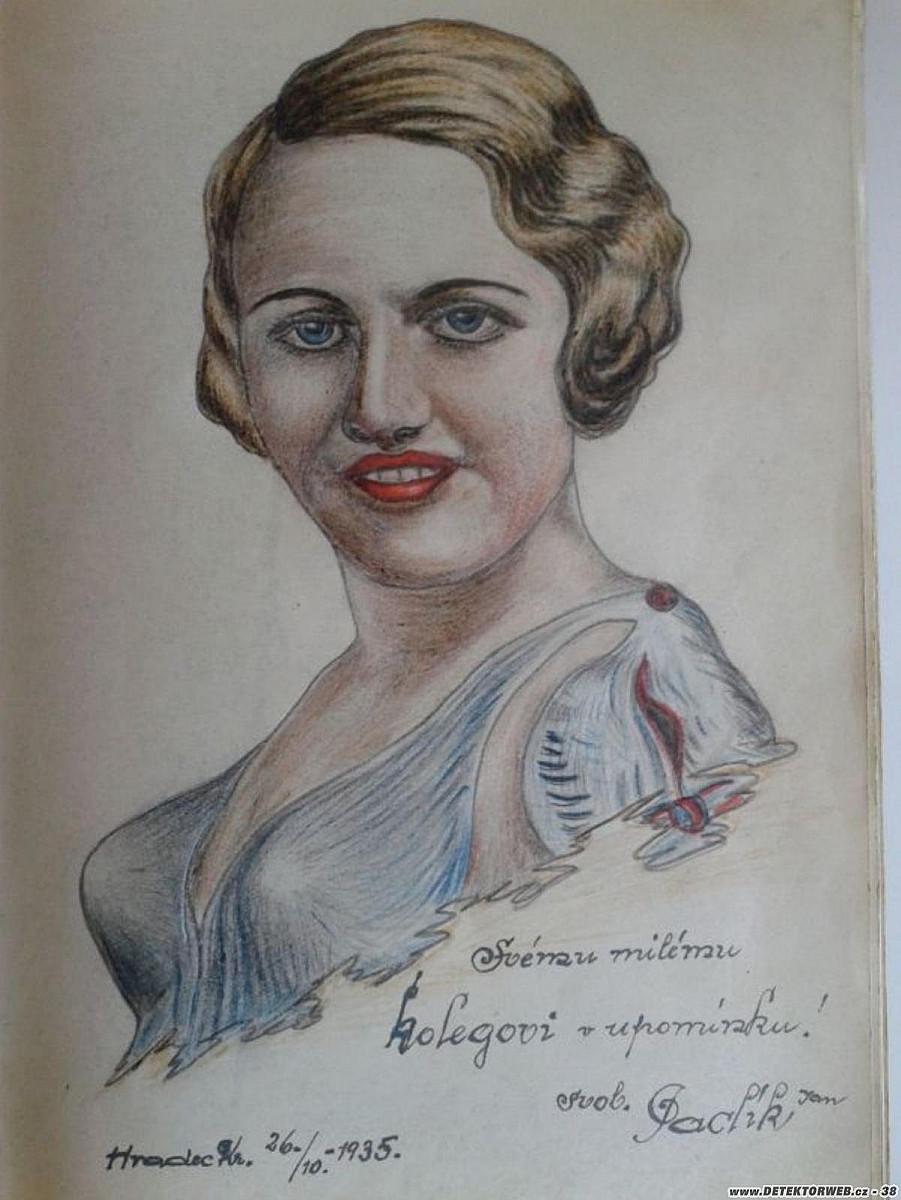 Svému milému
kolegovi v upomínku!
svob. Pachlík Jan
Hradec Kr. 26./10.-1935.
www.DETEKTORWEB.cz - 38